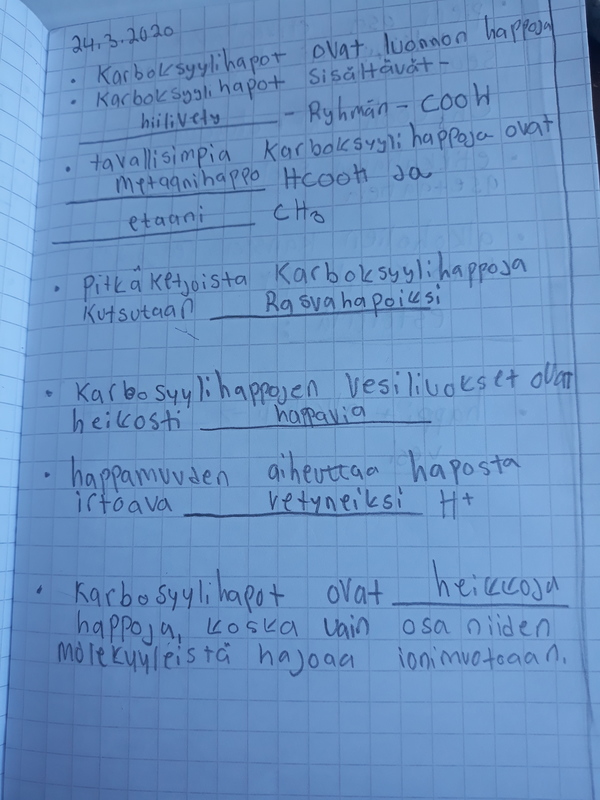 24.3.2020
• Karboksyylihapot ovat luonnon happoja
• Karboksyylihapot sisältävät-
hiilivety - Ryhmän - COOH
• tavallisimpia Karboksyylihappoja ovat
metaanihappo HCOOH ja
etaani CH3
• Pitkäketjoista Karboksyylihappoja
Kutsutaan Rasvahapoiksi
• Karbosyylihappojen vesiliuokset ovat
heikosti happavia
• happamuuden aiheuttaa haposta
irtoava vetyneiksi H+
• Karbosyylihapot ovat heikkoja
happoja, koska vain osa niiden
molekyyleistä hajoaa ionimuotoaan.